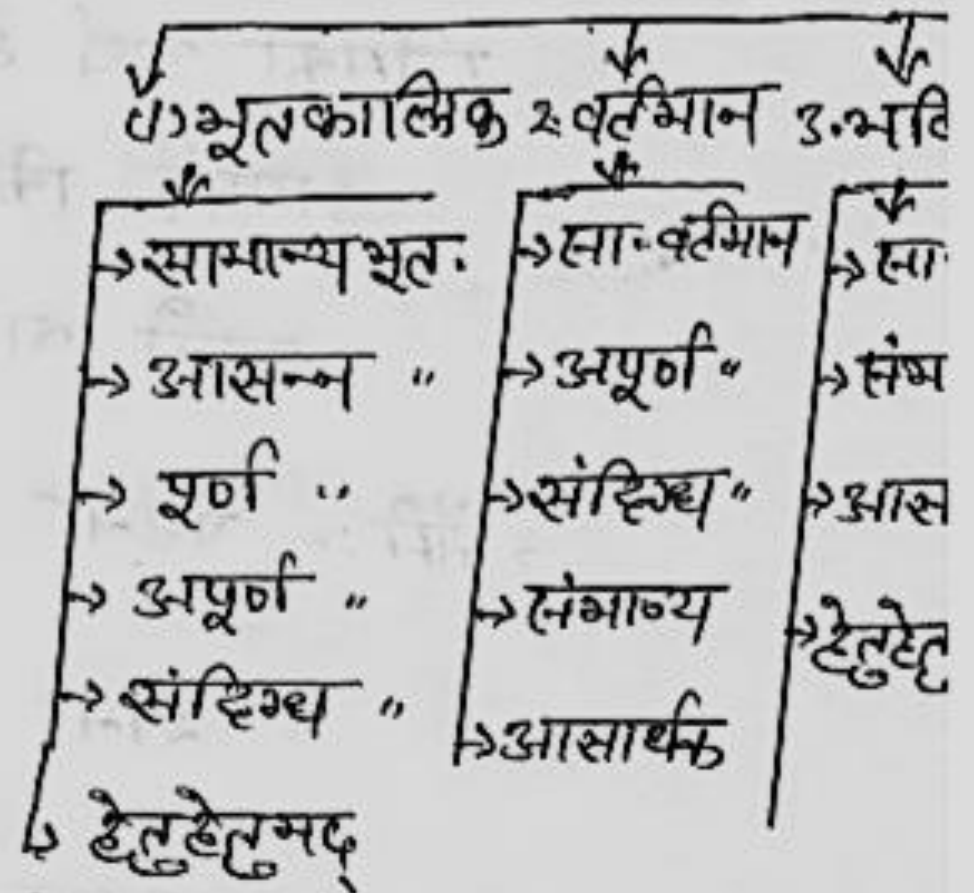 (1) भूतकालिक 2. वर्तमान 3. भवि
→ सामान्य भूत.
→ आसन्न "
→ पूर्ण "
→ अपूर्ण "
→ संदिग्ध "
→ हेतुहेतुमद्
→ सा. वर्तमान
→ अपूर्ण "
→ संदिग्ध "
→ संभाव्य
→ आसार्थक
→ सा.
→ संभ
→ आस
→ हेतुहेतु